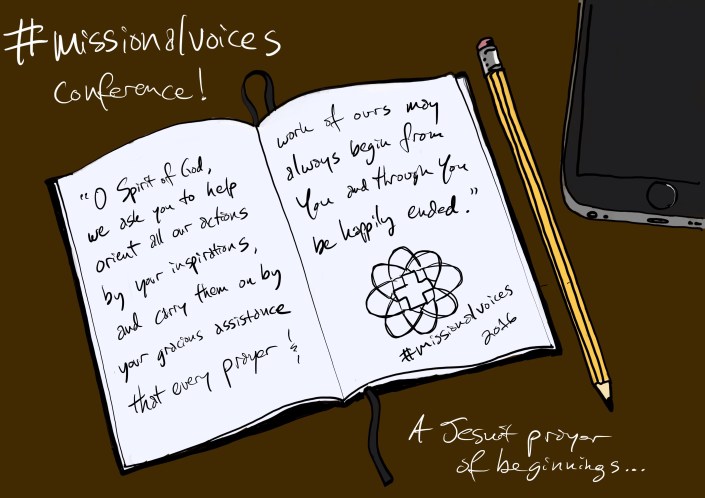 #missionalvoices
Conference!
"O Spirit of God,
we ask you to help
orient all our actions
by your inspirations,
and carry them on by
your gracious assistance
that every prayer &
work of ours may
always begin from
You and through You
be happily ended."
#missionalvoices
2016
A Jesuit prayer
of beginnings...